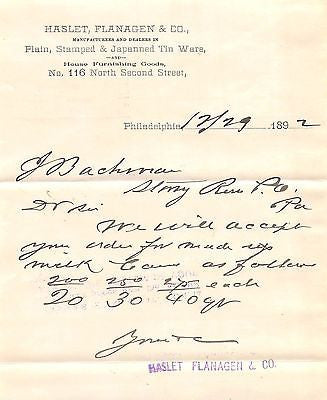 HASLET, FLANAGEN & CO.,
MANUFACTURERS AND DEALERS IN
Plain, Stamped & Japanned Tin Ware,
—AND—
House Furnishing Goods,
No. 116 North Second Street,
Philadelphia 12/29 1892
J Bachman
Stony Run P.O.
Pa
Dr Sir
We will accept
your order for made up
milk Cans as follow
200 250 each
20 30 40 qt
Yours &c
HASLET FLANAGEN & CO.